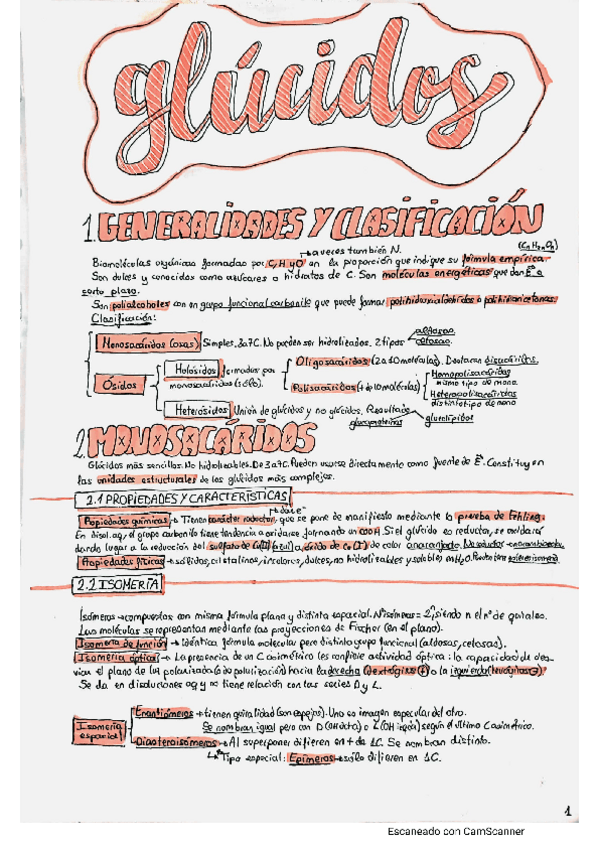 glúcidos
1. GENERALIDADES Y CLASIFICACIÓN
a veces también N. (CnH2nOn)
Biomoléculas orgánicas formadas por C, H y O en la proporción que indique su fórmula empírica.
Son dulces y conocidos como azúcares o hidratos de C. Son moléculas energéticas que dan E a
corto plazo.
Son polialcoholes con un grupo funcional carbonilo que puede formar polihidroxialdehídos o polihidroxicetonas.
Clasificación:
Monosacáridos (osas) Simples. 3 a 7C. No pueden ser hidrolizados. 2 tipos aldosas
celosas.
Ósidos
Holósidos formados por monosacáridos
Oligosacáridos (2 a 10 moléculas). Destacan disacáridos.
Polisacáridos (+ de 10 moléculas)
Homopolisacáridos
mismo tipo de mono
Heteropolisacáridos
distinto tipo de mono
Heterósidos Unión de glúcidos y no glúcidos. Resultado glucolípidos
glucoproteínas
2. MONOSACÁRIDOS
Glúcidos más sencillos. No hidrolizables. De 3 a 7C. Pueden usarse directamente como fuente de E. Constituyen
las unidades estructurales de los glúcidos más complejos.
2.1 PROPIEDADES Y CARACTERÍSTICAS
dar e-
Propiedades químicas → Tienen carácter reductor, que se pone de manifiesto mediante la prueba de Fehling.
En disol. aq, el grupo carbonilo tiene tendencia a oxidarse formando un COOH. Si el glúcido es reductor, se oxidará
dando lugar a la reducción del sulfato de Cu(II) (azul) a óxido de Cu(I) de color anaranjado. No reductor → no cambia color.
Propiedades físicas → sólidos, cristalinos, incoloros, dulces, no hidrolizables y solubles en H2O. Pueden tener
2.2 ISOMERÍA
Isómeros → compuestos con misma fórmula plana y distinta espacial. Nº isómeros = 2ⁿ, siendo n el nº de quirales.
Las moléculas se representan mediante las proyecciones de Fischer (en el plano).
Isomería de función → Idéntica fórmula molecular pero distinto grupo funcional (aldosas, celosas).
Isomería óptica → La presencia de un C asimétrico les confiere actividad óptica: la capacidad de des-
viar el plano de luz polarizada (de polarización) hacia la derecha (dextrógiros (+)) o la izquierda (levógiros (-)).
Se da en disoluciones aq y no tiene relación con las series D y L.
Isomería espacial
Enantiómeros → tienen quiralidad (son espejos). Uno es imagen especular del otro.
Se nombran igual pero con D (OH dcha) o L (OH izqda) según el último C asimétrico.
Diasteroisómeros → Al superponer difieren en + de 1C. Se nombran distinto.
Tipo especial: Epímeros → sólo difieren en 1C.
1
Escaneado con CamScanner